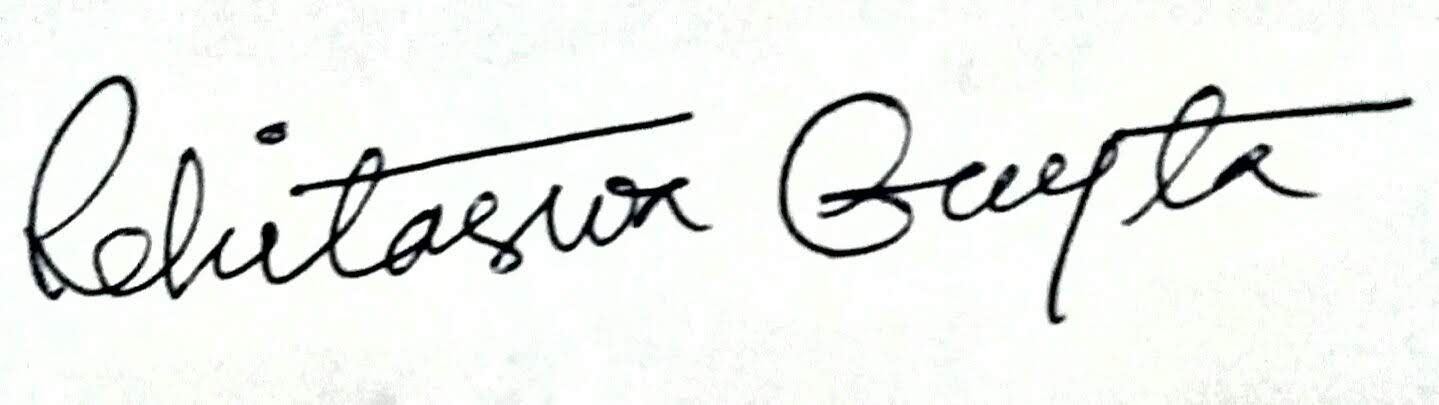 Rohitaswa Gupta